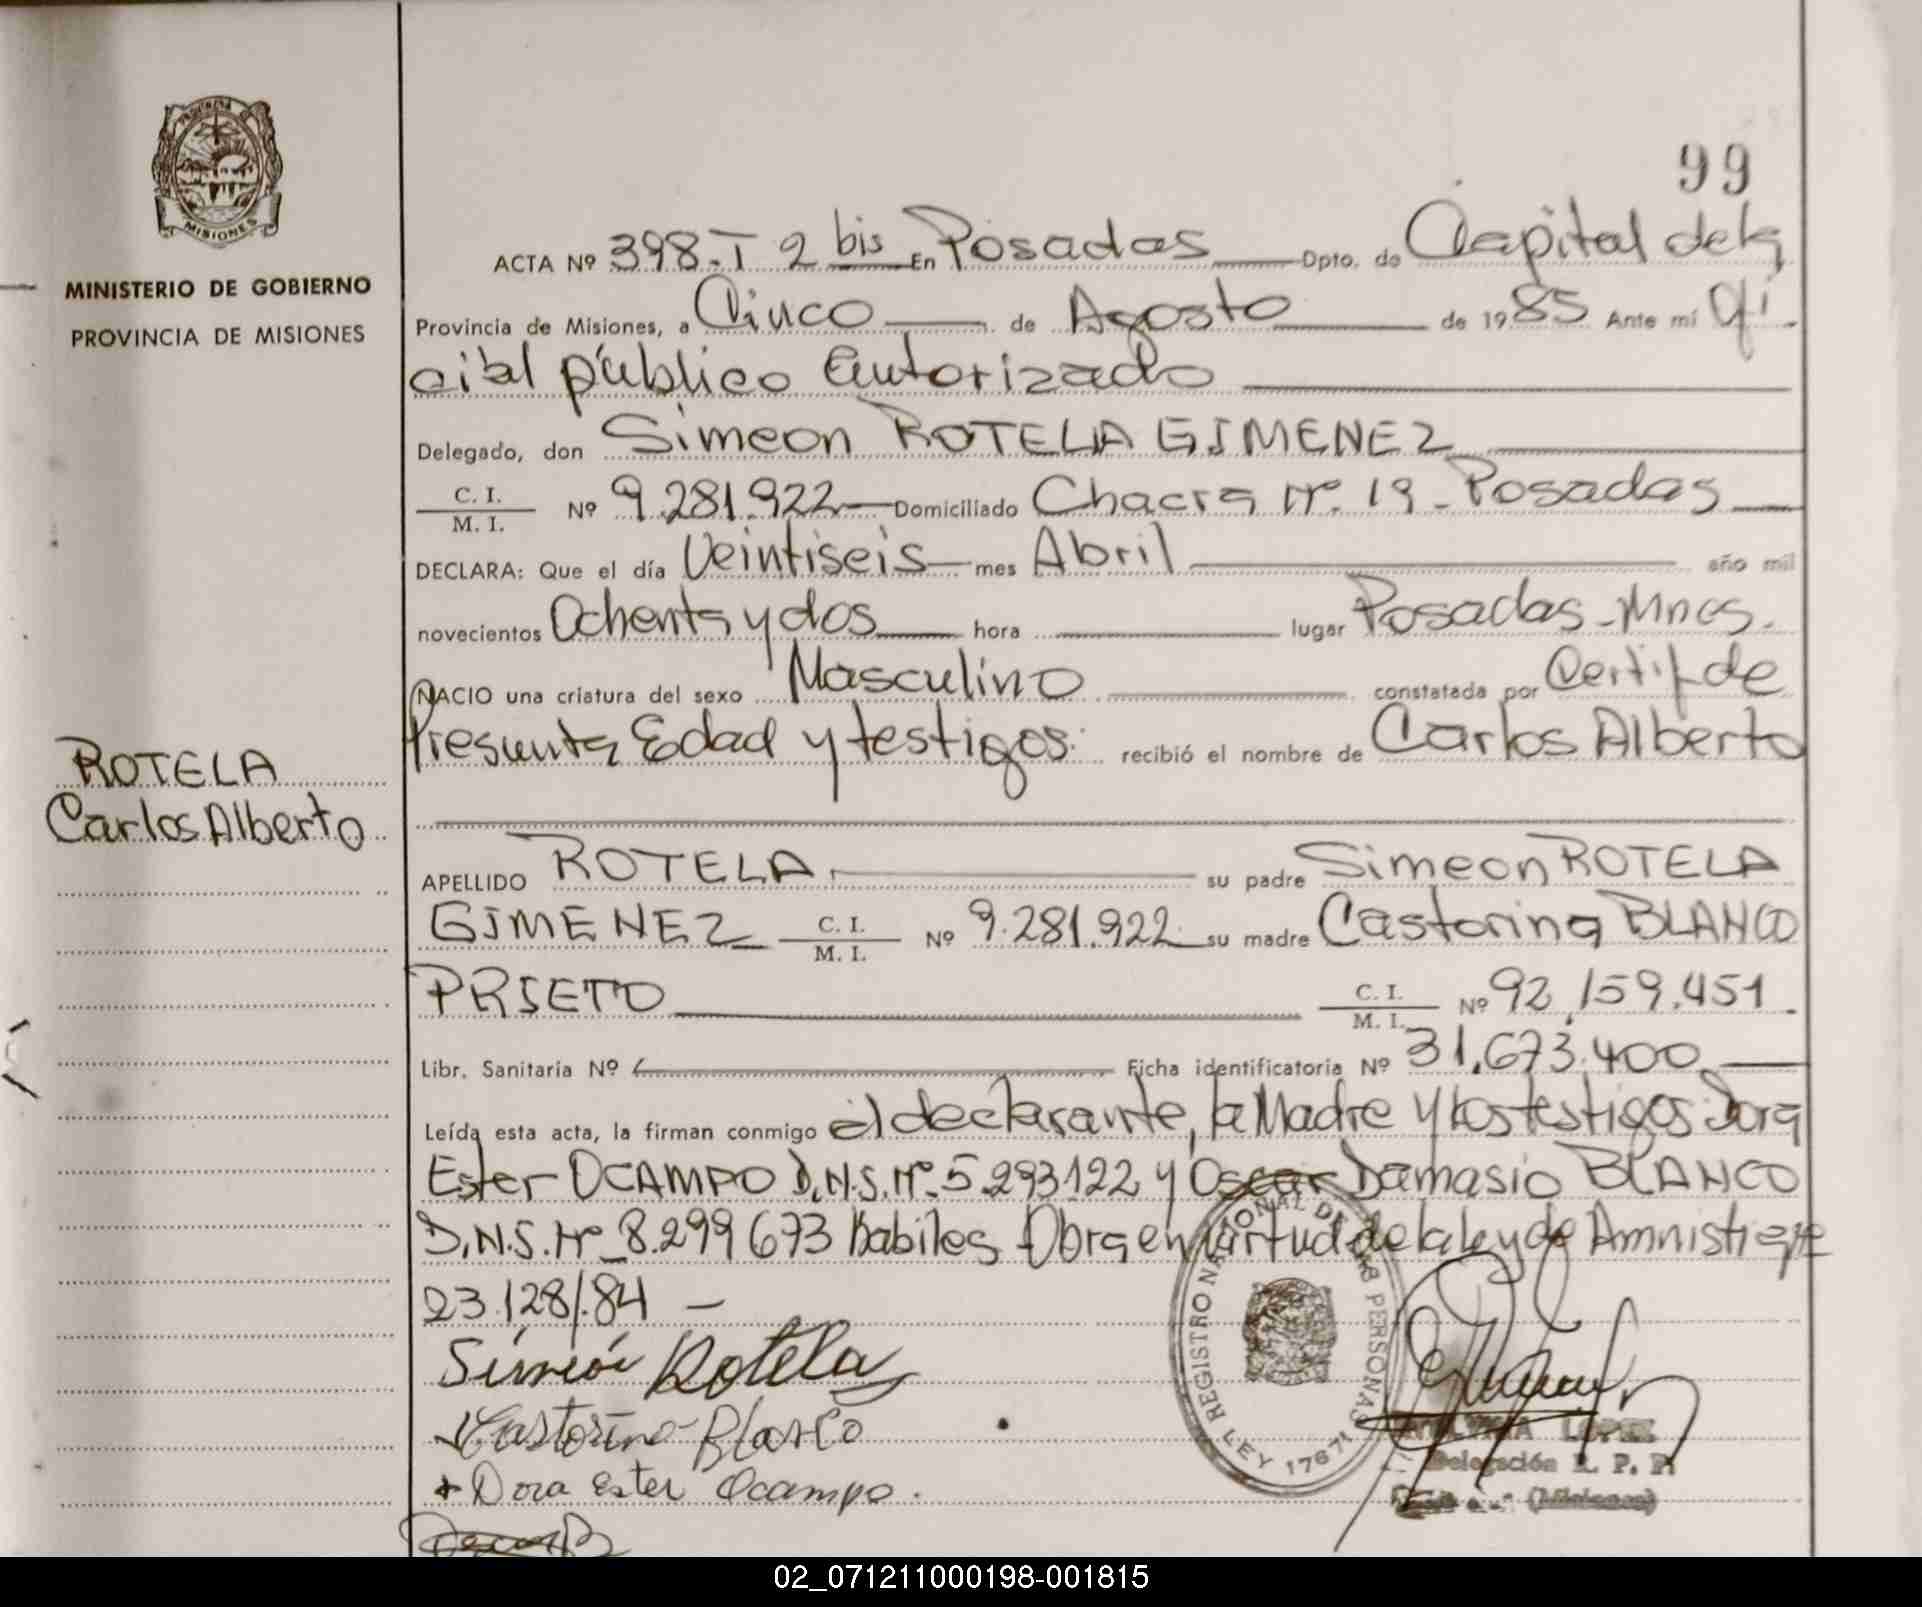 PROVINCIA DE
MISIONES
MINISTERIO DE GOBIERNO
PROVINCIA DE MISIONES
ROTELA
Carlos Alberto
99
ACTA Nº 398.T 2 bis En Posadas Dpto. de Capital de la
Provincia de Misiones, a Cinco de Agosto de 1985 Ante mí Ofi
cial público autorizado
Delegado, don Simeon ROTELA GIMENEZ
C. I.
M. I. Nº 9.281.922 Domiciliado Chacra Nº. 19 - Posadas
DECLARA: Que el día Veintiseis mes Abril año mil
novecientos Ochenta y dos hora lugar Posadas - Mnes.
NACIO una criatura del sexo Masculino constatada por Certif. de
Presunta Edad y testigos. recibió el nombre de Carlos Alberto
APELLIDO ROTELA su padre Simeon ROTELA
GIMENEZ C. I.
M. I. Nº 9.281.922 su madre Castorina BLANCO
PRIETO C. I.
M. I. Nº 92.159.451
Libr. Sanitaria Nº Ficha identificatoria Nº 31.673.400
Leída esta acta, la firman conmigo el declarante, la Madre y los testigos Dora
Ester OCAMPO D.N.I. Nº. 5.293.122 y Oscar Damasio BLANCO
D.N.I. Nº 8.299.673 habiles. Obra en virtud de la ley de Amnistia
23.128/84 -
Simeón Rotela
Castorina Blanco
+ Dora Ester Ocampo.
REGISTRO NACIONAL DE LAS PERSONAS
LEY 17671
LOPEZ
Delegación R. P. P.
(Misiones)
02_071211000198-001815